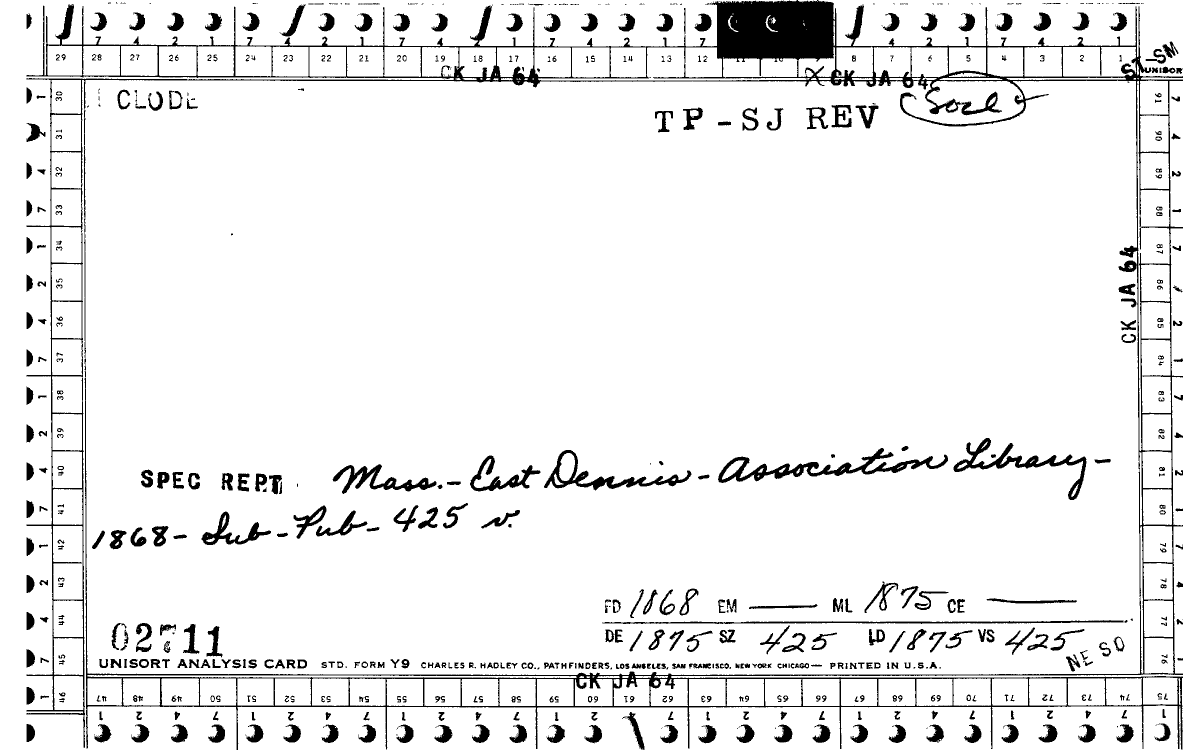 7 4 2 1 7 4 2 1 7 4 2 1 7 4 2 1 7 4 2 1 7 4 2 1
29 28 27 26 25 24 23 22 21 20 19 18 17 16 15 14 13 12 11 10 9 8 7 6 5 4 3 2 1
ST-SM
UNISORT
CK JA 64
X CK JA 64
CLODE
TP-SJ REV
30 31 32 33 34 35 36 37 38 39 40 41 42 43 44 45 46
1 2 4 7 1 2 4 7 1 2 4 7 1 2 4 7 1
91 90 89 88 87 86 85 84 83 82 81 80 79 78 77 76 75
CK JA 64
SPEC REPT Mass.- East Dennis - Association Library -
1868 - Sub - Pub - 425 v.
FD 1868 EM —— ML 1875 CE ——
DE 1875 SZ 425 LD 1875 VS 425
NE SO
02711
UNISORT ANALYSIS CARD STD. FORM Y9 CHARLES R. HADLEY CO., PATHFINDERS, LOS ANGELES, SAN FRANCISCO, NEW YORK CHICAGO — PRINTED IN U.S.A.
CK JA 64
47 48 49 50 51 52 53 54 55 56 57 58 59 60 61 62 63 64 65 66 67 68 69 70 71 72 73 74 75
1 2 4 7 1 2 4 7 1 2 4 7 1 2 4 7 1 2 4 7 1 2 4 7 1 2 4 7 1